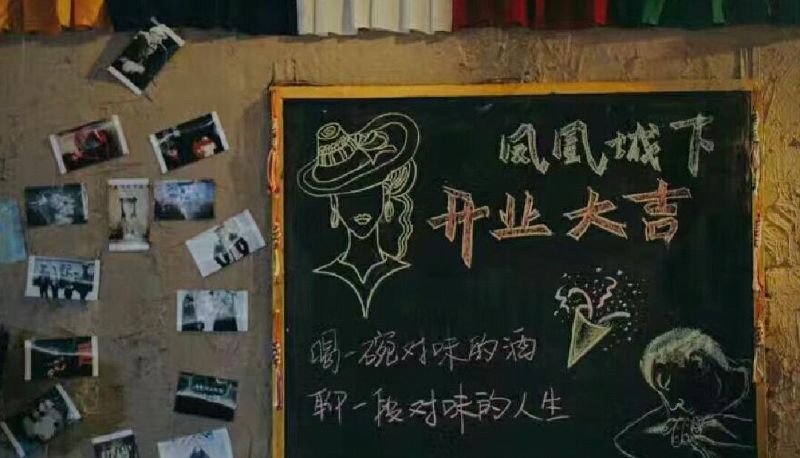 凤凰城下
开业大吉
喝一碗对味的酒
聊一段对味的人生